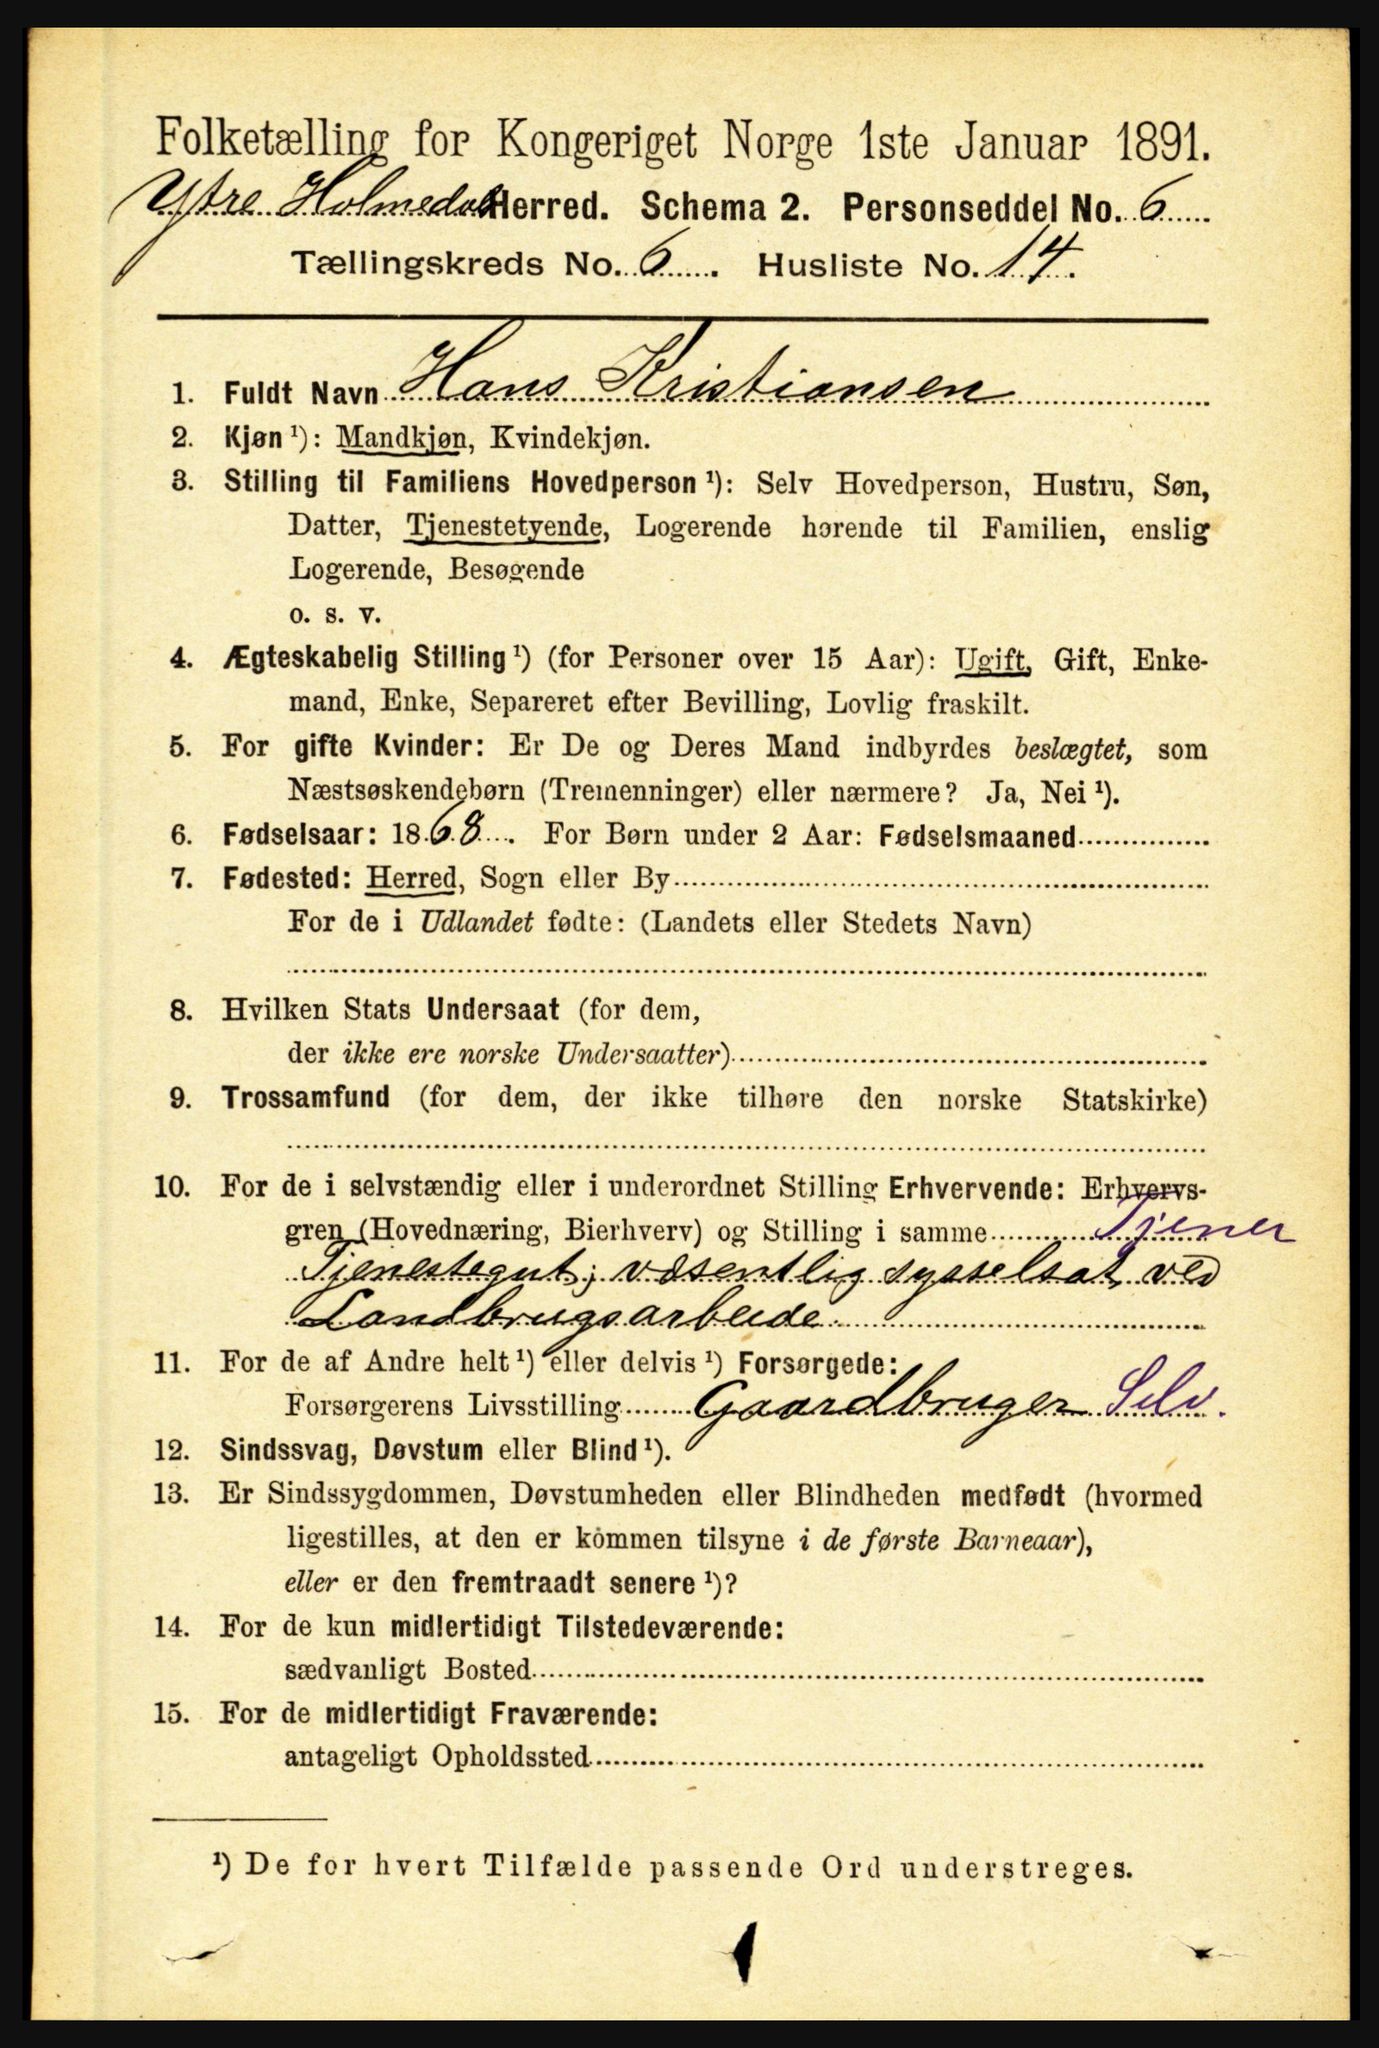 Folketælling for Kongeriget Norge 1ste Januar 1891.
Ytre Holmedal Herred. Schema 2. Personseddel No. 6
Tællingskreds No. 6. Husliste No. 14.
1. Fuldt Navn Hans Kristiansen
2. Kjøn¹): Mandkjøn, Kvindekjøn.
3. Stilling til Familiens Hovedperson¹): Selv Hovedperson, Hustru, Søn,
Datter, Tjenestetyende, Logerende hørende til Familien, enslig
Logerende, Besøgende
o. s. v.
4. Ægteskabelig Stilling¹) (for Personer over 15 Aar): Ugift, Gift, Enke-
mand, Enke, Separeret efter Bevilling, Lovlig fraskilt.
5. For gifte Kvinder: Er De og Deres Mand indbyrdes beslægtet, som
Næstsøskendebørn (Tremenninger) eller nærmere? Ja, Nei¹).
6. Fødselsaar: 1868. For Børn under 2 Aar: Fødselsmaaned
7. Fødested: Herred, Sogn eller By
For de i Udlandet fødte: (Landets eller Stedets Navn)
8. Hvilken Stats Undersaat (for dem,
der ikke ere norske Undersaatter)
9. Trossamfund (for dem, der ikke tilhøre den norske Statskirke)
10. For de i selvstændig eller i underordnet Stilling Erhvervende: Erhvervs-
gren (Hovednæring, Bierhverv) og Stilling i samme Tjener
Tjenestegut; væsentlig sysselsat ved
Landbrugsarbeide
11. For de af Andre helt¹) eller delvis¹) Forsørgede:
Forsørgerens Livsstilling Gaardbruger Selv.
12. Sindssvag, Døvstum eller Blind¹).
13. Er Sindssygdommen, Døvstumheden eller Blindheden medfødt (hvormed
ligestilles, at den er kommen tilsyne i de første Barneaar),
eller er den fremtraadt senere¹)?
14. For de kun midlertidigt Tilstedeværende:
sædvanligt Bosted
15. For de midlertidigt Fraværende:
antageligt Opholdssted
¹) De for hvert Tilfælde passende Ord understreges.